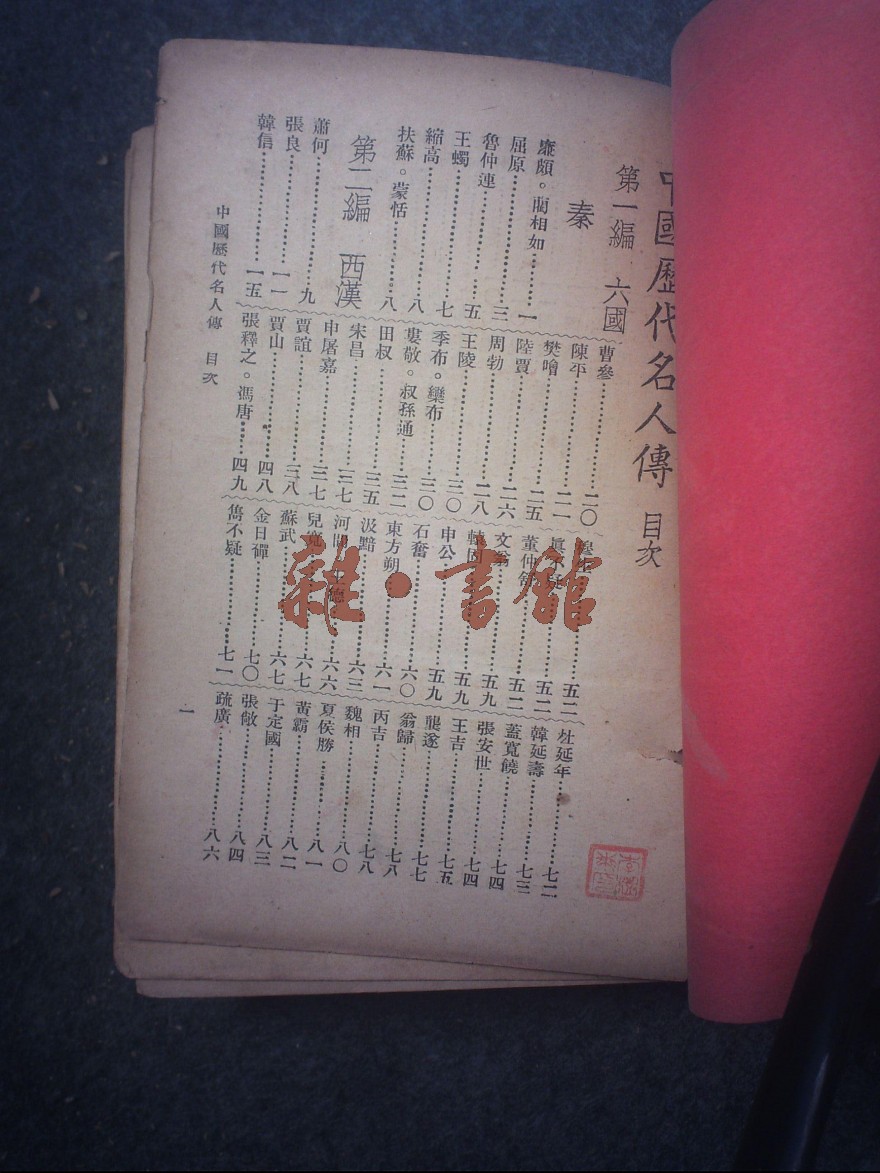 中國歷代名人傳 目次
第一編 六國
秦
廉頗。藺相如………一
屈原………三
魯仲連………五
王蠋………七
縮高………八
扶蘇。蒙恬………八
第二編 西漢
蕭何………九
張良………一一
韓信………一五
曹參………二〇
陳平………二一
樊噲………二五
陸賈………二六
周勃………二八
王陵………三〇
季布。欒布………三〇
婁敬。叔孫通………三二
田叔………三五
宋昌………三七
申屠嘉………三七
賈誼………三八
賈山………四八
張釋之。馮唐………四九
………五二
不疑………五二
董仲舒………五二
文翁………五九
轅固………五九
申公………五九
石奮………六〇
東方朔………六一
汲黯………六三
河間 德………六六
兒寬………六七
蘇武………六七
金日磾………七〇
雋不疑………七一
杜延年………七二
韓延壽………七三
蓋寬饒………七四
張安世………七四
王吉………七五
龔遂………七七
翁歸………七八
丙吉………七八
魏相………八〇
夏侯勝………八一
黃霸………八二
于定國………八三
張敞………八四
疏廣………八六
中國歷代名人傳 目次
一
雜·書館